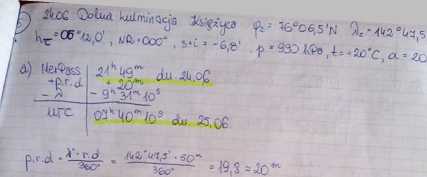 24.06 Dolna kulminacja Księżyca φz = 76°06,5'N λz = 142°47,5
hz = 06°12,0', NR = 000°, i+i = -6,8' p = 990 hPa, t = -20°C, a = 20
a) MerPass | 21h 49m du. 24.06
+p.r.d | + 20m
- λ | - 9h 31m 10s
UTC | 07h 40m 10s du. 25.06
p.r.d = λ°·r.d / 360° = 142°47,5'·50m / 360° = 19,8 = 20m